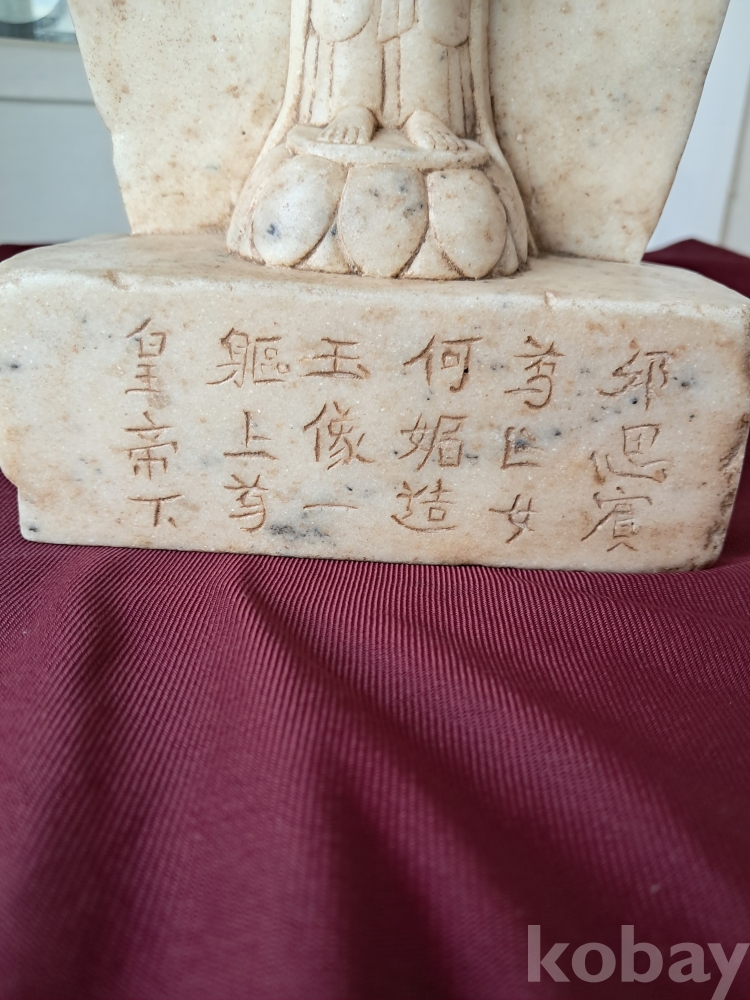 邸思賓
為亡女
何媚造
玉像一
軀上為
皇帝下
kobay